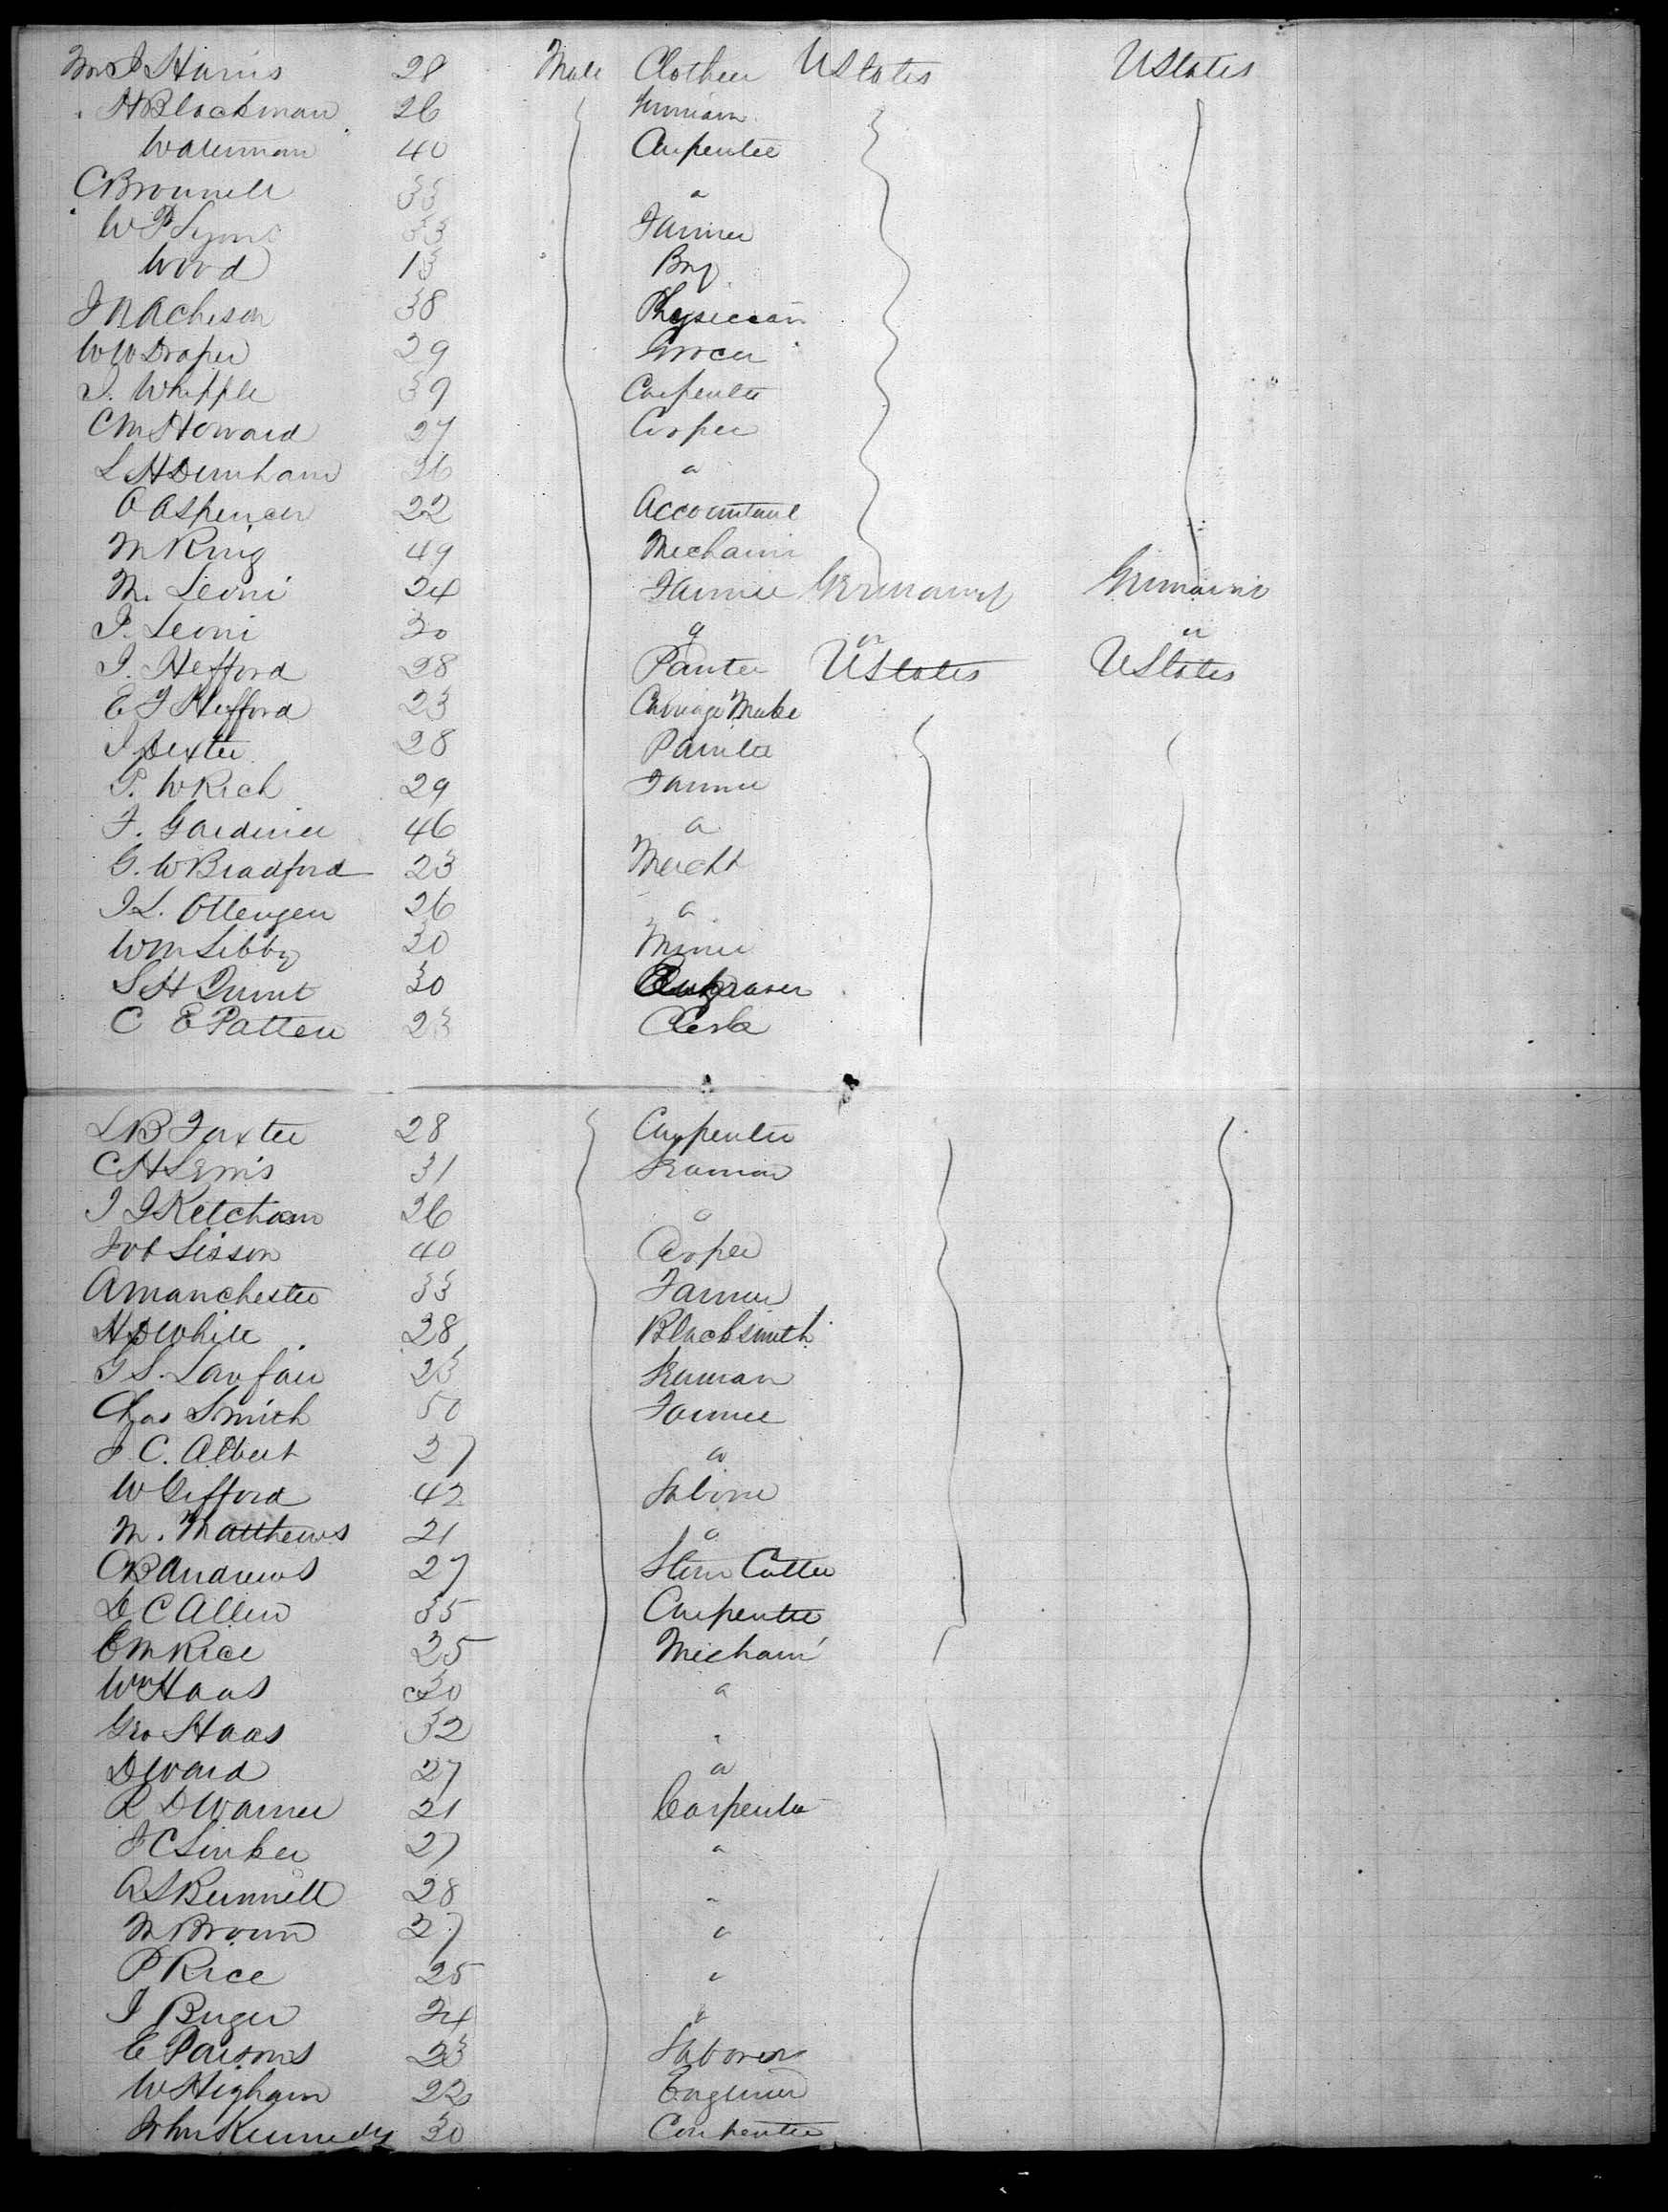 Mr J Harris 28 Male Clothier UStates UStates
H Blackman 26
Waterman 40 Carpenter
C Brownell 33 "
W P Lyons 33 Farmer
Wood 13 Boy
J N Acheson 38 Physician
W W Draper 29 Grocer
J. Whipple 39 Carpenter
C M Howard 27 Cooper
L H Durnham 26 "
O A Spencer 22 Accountant
M King 49 Mechanic
M. Leoni 24 Farmer Germany Germany
J. Leoni 30 " " "
J. Hefford 28 Painter UStates UStates
E J Hefford 23 Carriage Maker
J Dexter 28 Painter
P. W Rich 29 Farmer
F. Gardiner 46 "
G. W Bradford 23 Mercht
J L. Ottengen 26 "
Wm Libby 30 Miner
S H Quint 30 Engraver
C E Patten 23 Clerk
L B Foxter 28 Carpenter
C H Lewis 31 Seaman
J J Ketcham 26 "
Job Sisson 40 Cooper
A Manchester 33 Farmer
H D White 28 Blacksmith
G S. Lanfair 23 Seaman
Chas Smith 50 Farmer
J C. Albert 27 "
W Gifford 42 Labore
M. Matthews 21 "
C B Andrews 27 Stone Cutter
D C Allen 35 Carpenter
E M Rice 25 Mechani
Wm Haas 30 "
Geo Haas 32 "
D Ward 27 "
R D Warner 21 Carpenter
J C Linker 27 "
A S Bunnell 28 "
M Brown 27 "
P Rice 25 "
J Buger 24 "
E Parsons 23 Laborer
W Higham 22 Engineer
John Kennedy 30 Carpenter